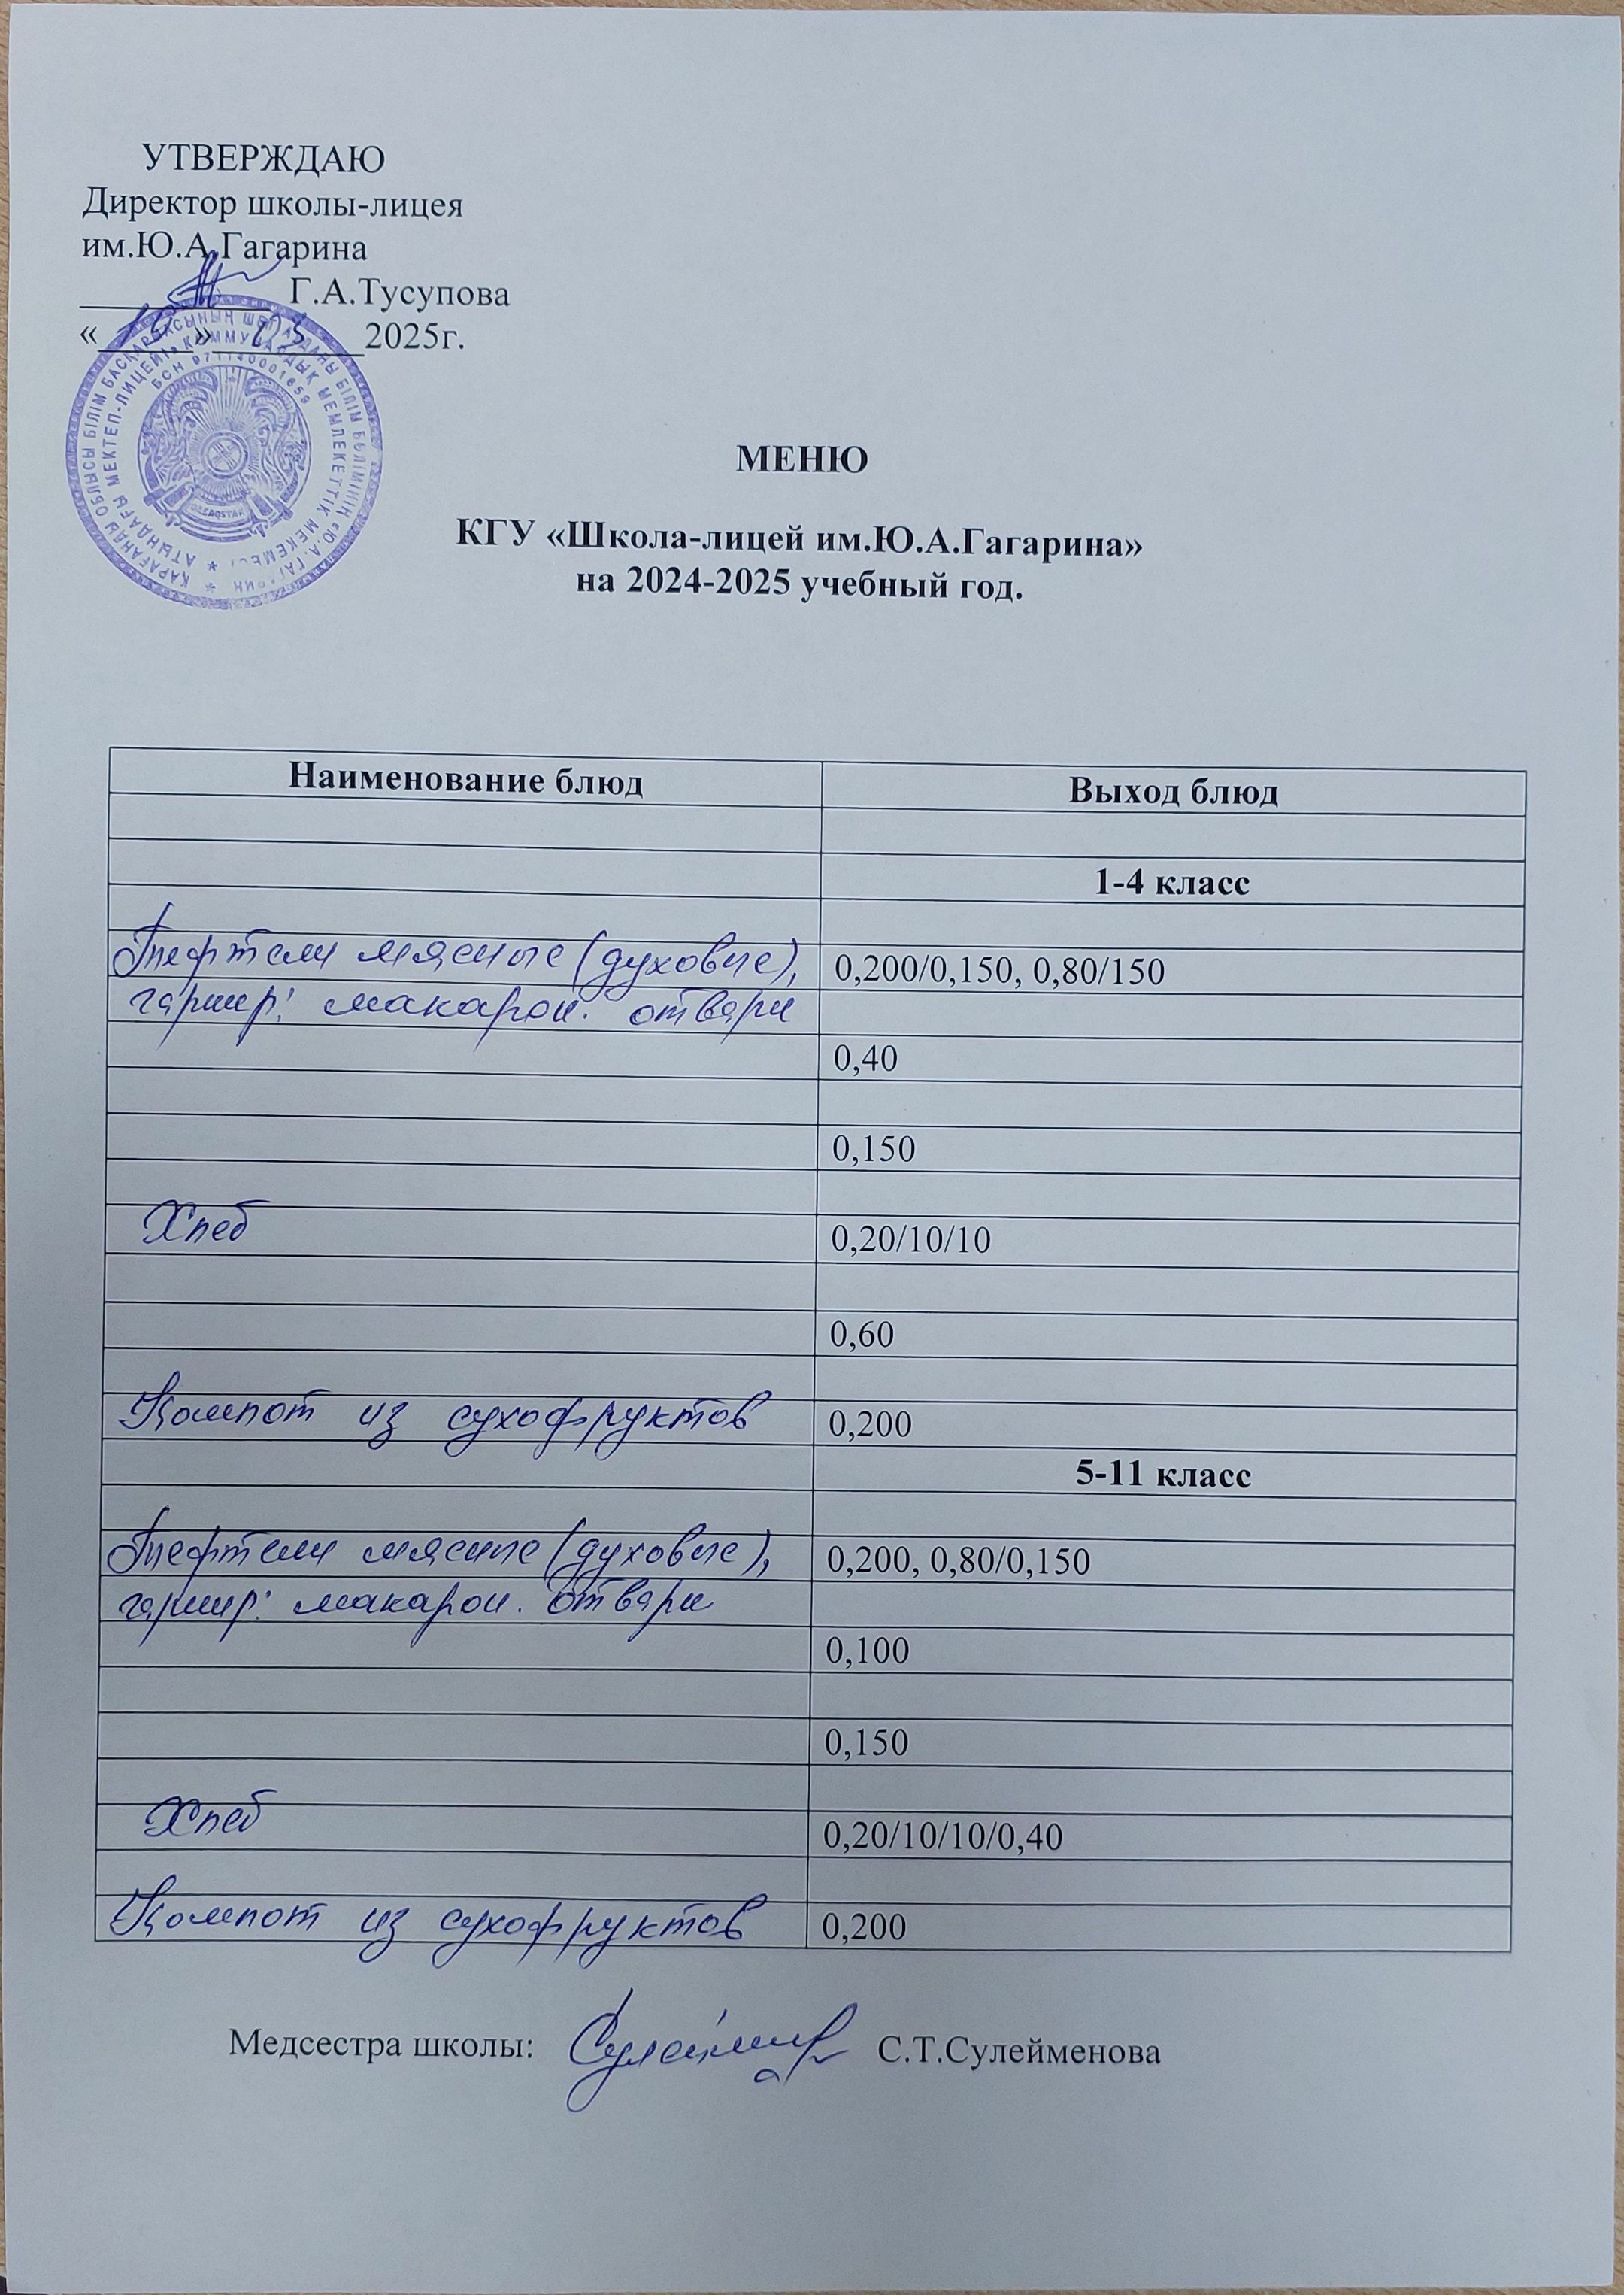 УТВЕРЖДАЮ
Директор школы-лицея
им.Ю.А.Гагарина
Г.А.Тусупова
« » 03 2025г.
ҚАРАҒАНДЫ ОБЛЫСЫ БІЛІМ БАСҚАРМАСЫНЫҢ ШЕТ АУДАНЫ БІЛІМ БӨЛІМІНІҢ «Ю.А.ГАГАРИН
АТЫНДАҒЫ МЕКТЕП-ЛИЦЕЙІ» КОММУНАЛДЫҚ МЕМЛЕКЕТТІК МЕКЕМЕСІ
БСН 971140001659
QAZAQSTAN
МЕНЮ
КГУ «Школа-лицей им.Ю.А.Гагарина»
на 2024-2025 учебный год.
Наименование блюд Выход блюд
1-4 класс
Тефтели мясные (духовые), 0,200/0,150, 0,80/150
гарнир: макарон. отварн
0,40
0,150
Хлеб 0,20/10/10
0,60
Компот из сухофруктов 0,200
5-11 класс
Тефтели мясные (духовые), 0,200, 0,80/0,150
гарнир: макарон. отварн
0,100
0,150
Хлеб 0,20/10/10/0,40
Компот из сухофруктов 0,200
Медсестра школы: С.Т.Сулейменова